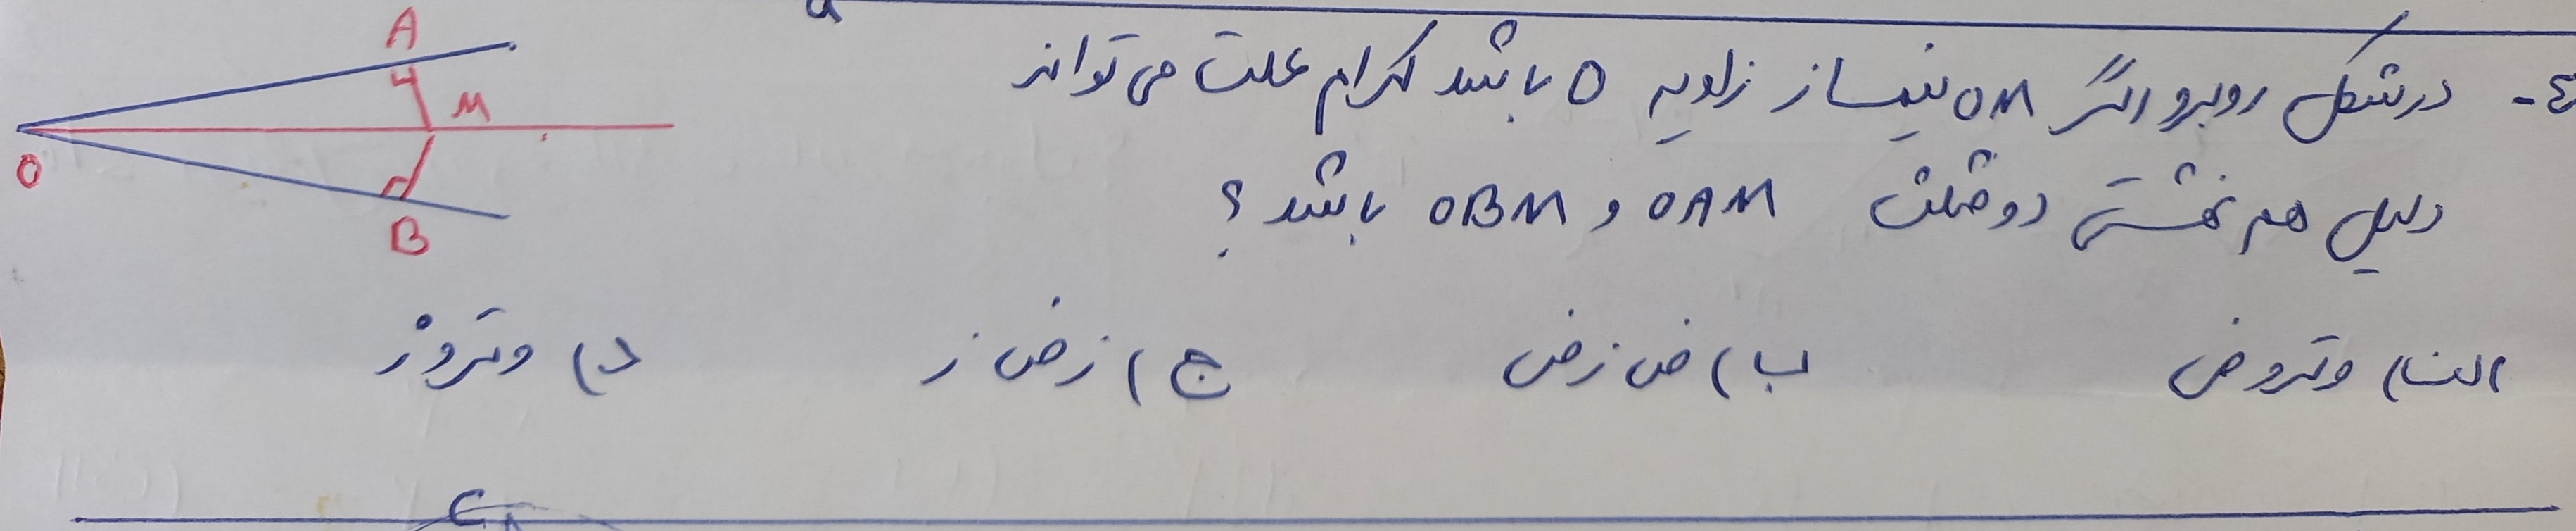 ٤- در شکل روبرو اگر OM نیمساز زاویه O باشد کدام علت می تواند
دلیل هم نهشتی دو مثلث OAM و OBM باشد ؟
الف) وتر و ض ب) ض ز ض ج) ز ض ز د) وتر و ز
A
M
O
B